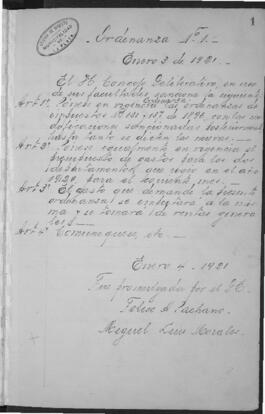 1
Ordenanza Nº 1.
Enero 3 de 1921.
El H. Concejo Deliberativo, en uso
de sus facultades, sanciona la siguiente
Ordenanza:
Art. 1º Pónese en vigencia las ordenanzas de
impuestos Nº 131 y 137 de 1896, con las mo
dificaciones sancionadas posteriormente
hasta tanto se dicten las nuevas.
Art. 2º Pónese igualmente en vigencia el
presupuesto de gastos para los dos
departamentos, que rigió en el año
1920, para el
Art. 3º El gasto que demande la presente
ordenanza se imputará a la mis
ma y se tomará de rentas genera
les.
Art. 4º Comuníquese, etc.
Enero 4 - 1921
Fue promulgada por el D.E.
Felipe A. Pachano
Miguel Luis Morales